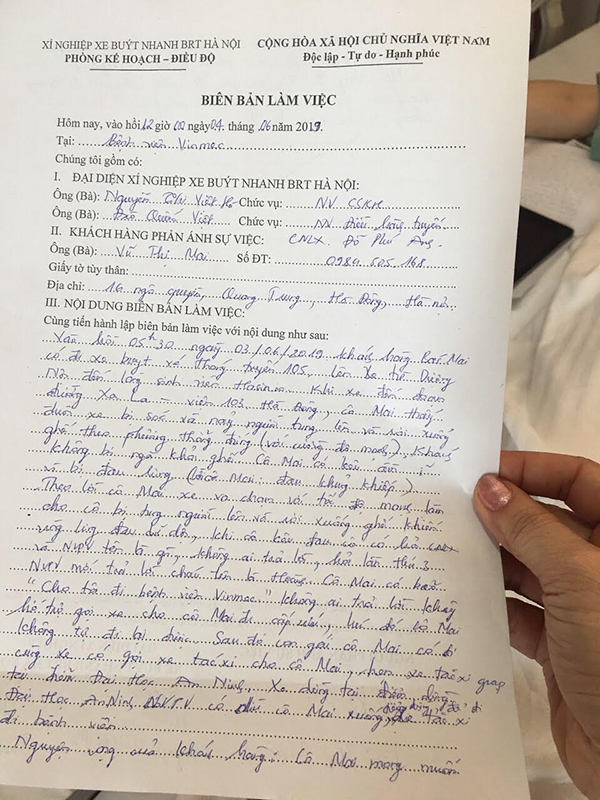 XÍ NGHIỆP XE BUÝT NHANH BRT HÀ NỘI
PHÒNG KẾ HOẠCH – ĐIỀU ĐỘ
CỘNG HÒA XÃ HỘI CHỦ NGHĨA VIỆT NAM
Độc lập - Tự do - Hạnh phúc
BIÊN BẢN LÀM VIỆC
Hôm nay, vào hồi 12 giờ 00 ngày 04 tháng 06 năm 2019.
Tại: Bệnh viện Vinmec
Chúng tôi gồm có:
I. ĐẠI DIỆN XÍ NGHIỆP XE BUÝT NHANH BRT HÀ NỘI:
Ông (Bà): Nguyễn Việt Chức vụ: NV CSKH
Ông (Bà): Đào Quốc Việt Chức vụ: NV Điều hành tuyến
II. KHÁCH HÀNG PHẢN ÁNH SỰ VIỆC: CNLX Đỗ Phú
Ông (Bà): Vũ Thị Mai Số ĐT: 0984 505 168
Giấy tờ tùy thân:
Địa chỉ: 16 ngô quyền, Quang Trung, Hà Đông, Hà nội
III. NỘI DUNG BIÊN BẢN LÀM VIỆC:
Cùng tiến hành lập biên bản làm việc với nội dung như sau:
Vào hồi 05h30 ngày 03/06/2019 khách hàng Bà Mai
có đi xe buýt xe tuyến 105, lên xe từ Dương
Nội đến Khi xe đến đoạn
đường Xa La – viện 103 Hà Đông, cô Mai thấy
đuôi xe bị sóc và nảy người tung lên và rơi xuống
ghế theo phương thẳng đứng (với cường độ mạnh). Khách
không bị ngã khỏi ghế. Cô Mai có kêu
và bị đau lưng (lời cô Mai: đau khủng khiếp).
Theo lời cô Mai xe va chạm với tốc độ mạnh làm
cho cô bị tung người lên và rơi xuống ghế khiến
vùng lưng đau dữ dội, khi cô kêu đau cô có hỏi CNLX
và NVPV tên là gì, không ai trả lời, hỏi lần thứ 3
NVPV mới trả lời cháu tên là Hoàng. Cô Mai có bảo
"Cho tôi đi bệnh viện Vinmec" không ai trả lời, không
hỗ trợ gọi xe cho cô Mai đi cấp cứu, lúc đó cô Mai
không tự đi lại được. Sau đó con gái cô Mai có đi
cùng xe có gọi xe taxi cho cô Mai, hẹn xe taxi grap
tại điểm Đại Học An Ninh. Xe dừng tại điểm dừng
Đại Học An Ninh NVPV có dìu cô Mai xuống xe taxi
đi bệnh viện.
Nguyện vọng của khách hàng: Cô Mai mong muốn